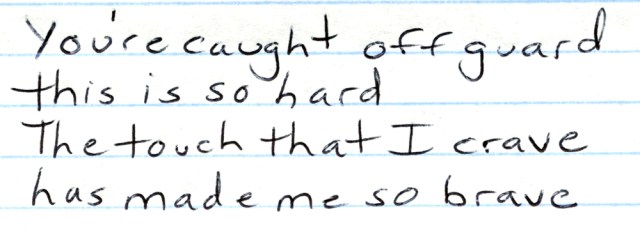 You're caught off guard
this is so hard
The touch that I crave
has made me so brave